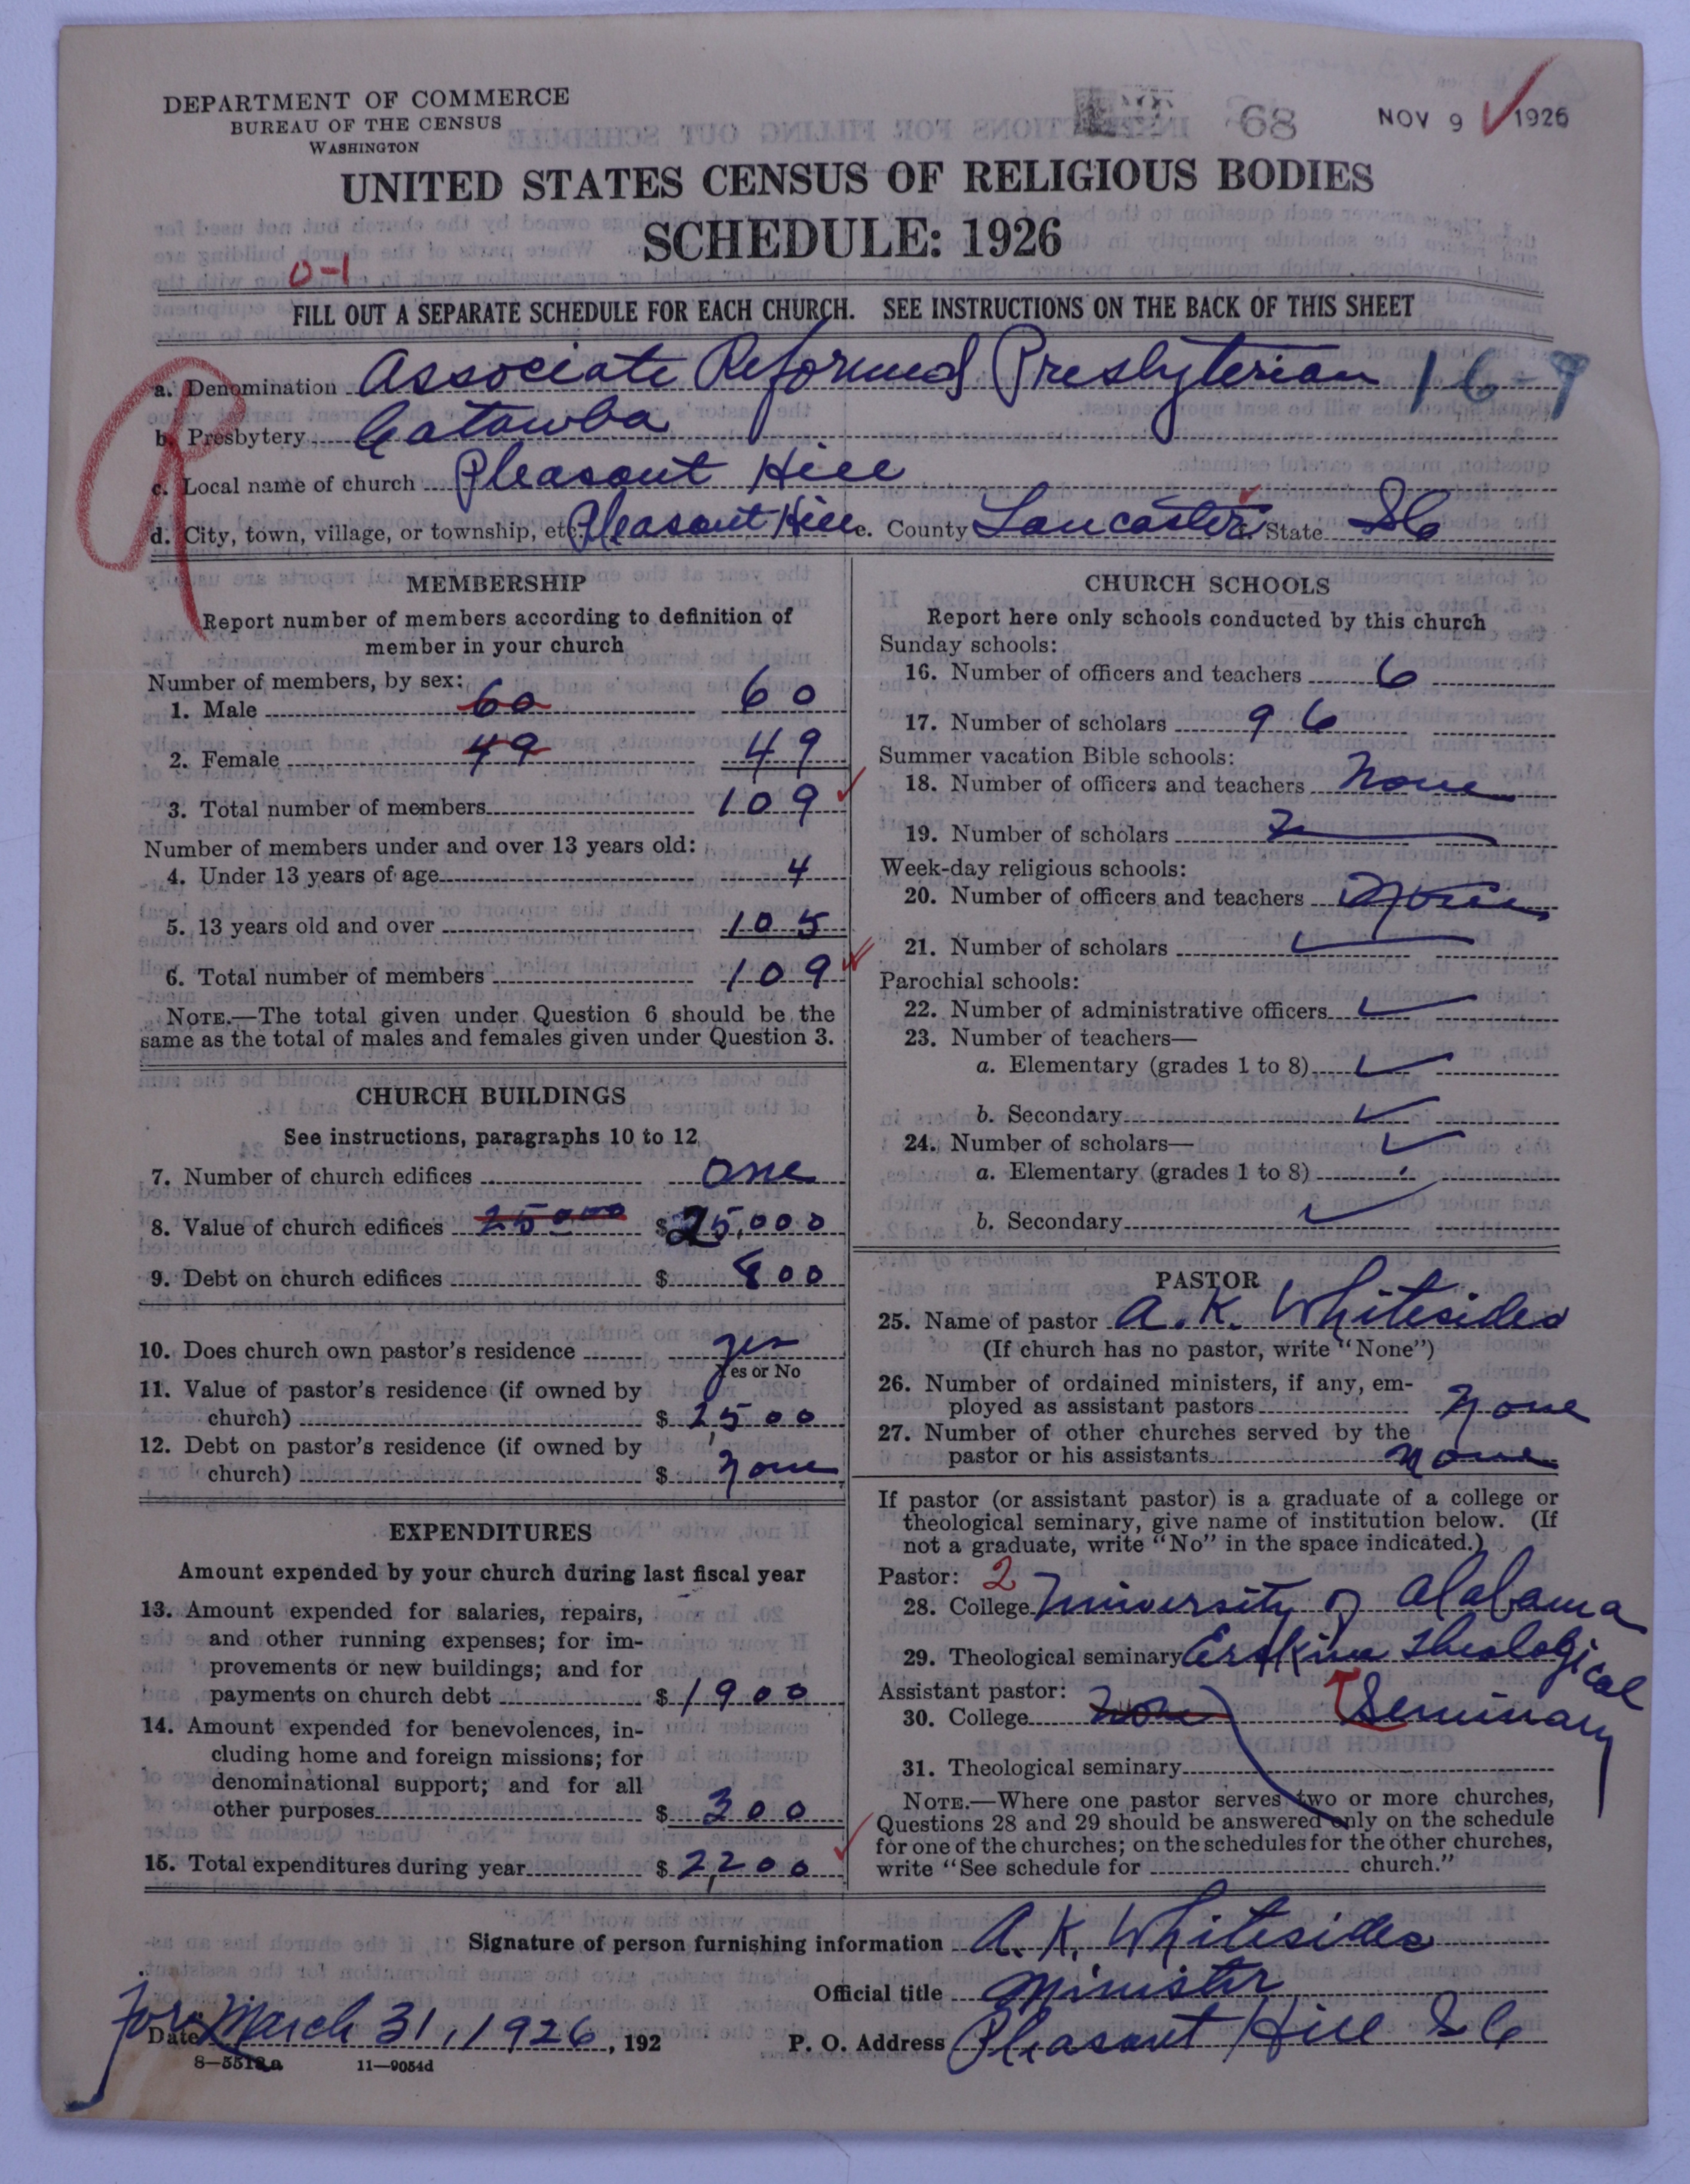 DEPARTMENT OF COMMERCE
BUREAU OF THE CENSUS
WASHINGTON
68
NOV 9 1926
UNITED STATES CENSUS OF RELIGIOUS BODIES
SCHEDULE: 1926
0-1
FILL OUT A SEPARATE SCHEDULE FOR EACH CHURCH. SEE INSTRUCTIONS ON THE BACK OF THIS SHEET
R
a. Denomination Associate Reformed Presbyterian 16-9
b. Presbytery Catawba
c. Local name of church Pleasant Hill
d. City, town, village, or township, etc. Pleasant Hill e. County Lancaster f. State SC
MEMBERSHIP
Report number of members according to definition of
member in your church
Number of members, by sex:
1. Male 60 60
2. Female 49 49
3. Total number of members 109
Number of members under and over 13 years old:
4. Under 13 years of age 4
5. 13 years old and over 105
6. Total number of members 109
NOTE.—The total given under Question 6 should be the
same as the total of males and females given under Question 3.
CHURCH BUILDINGS
See instructions, paragraphs 10 to 12
7. Number of church edifices one
8. Value of church edifices 25000 $25,000
9. Debt on church edifices $ 800
10. Does church own pastor's residence yes
Yes or No
11. Value of pastor's residence (if owned by
church) $ 2,500
12. Debt on pastor's residence (if owned by
church) $ none
EXPENDITURES
Amount expended by your church during last fiscal year
13. Amount expended for salaries, repairs,
and other running expenses; for im-
provements or new buildings; and for
payments on church debt $ 1900
14. Amount expended for benevolences, in-
cluding home and foreign missions; for
denominational support; and for all
other purposes $ 300
15. Total expenditures during year $ 2,200
CHURCH SCHOOLS
Report here only schools conducted by this church
Sunday schools:
16. Number of officers and teachers 6
17. Number of scholars 96
Summer vacation Bible schools:
18. Number of officers and teachers none
19. Number of scholars
Week-day religious schools:
20. Number of officers and teachers none
21. Number of scholars
Parochial schools:
22. Number of administrative officers
23. Number of teachers—
a. Elementary (grades 1 to 8)
b. Secondary
24. Number of scholars—
a. Elementary (grades 1 to 8)
b. Secondary
PASTOR
25. Name of pastor A. K. Whitesides
(If church has no pastor, write "None")
26. Number of ordained ministers, if any, em-
ployed as assistant pastors none
27. Number of other churches served by the
pastor or his assistants none
If pastor (or assistant pastor) is a graduate of a college or
theological seminary, give name of institution below. (If
not a graduate, write "No" in the space indicated.)
Pastor: 2
28. College University of Alabama
29. Theological seminary Erskine Theological
Seminary
Assistant pastor:
30. College none
31. Theological seminary
NOTE.—Where one pastor serves two or more churches,
Questions 28 and 29 should be answered only on the schedule
for one of the churches; on the schedules for the other churches,
write "See schedule for church."
Signature of person furnishing information A. K. Whitesides
Official title Minister
For
Date March 31, 1926, 192 P. O. Address Pleasant Hill SC
8—5512a 11—9054d